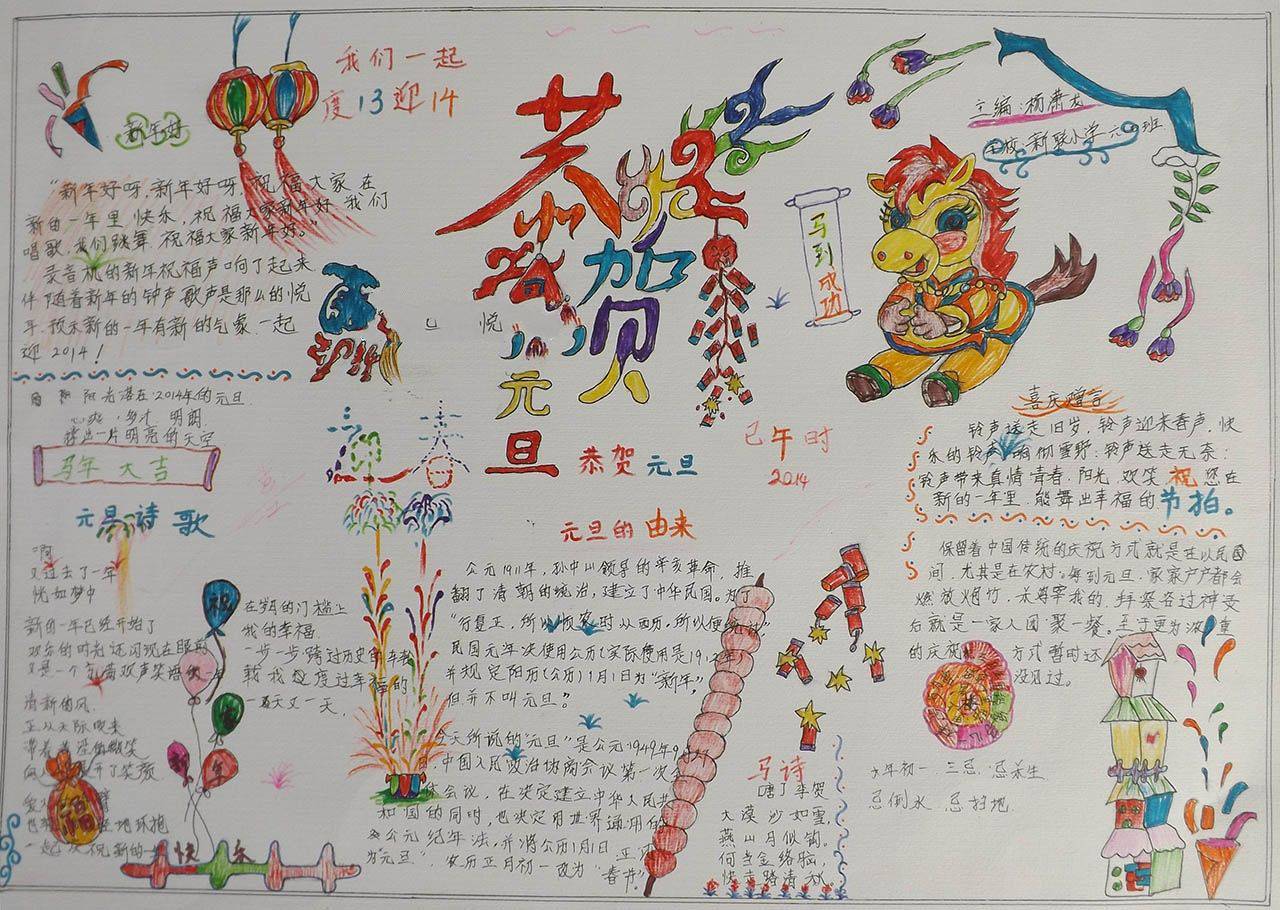 我们一起
度13迎14
新年好
“新年好呀,新年好呀,祝福大家在
新的一年里快乐,祝福大家新年好,我们
唱歌,我们跳舞,祝福大家新年好。”
录音机的新年祝福声响了起来
伴随着新年的钟声歌声是那么的悦
耳,预示新的一年有新的气象,一起
迎2014!
阳光洒在2014年的元旦
明亮的天空
马年大吉
元旦诗歌
“啊
又过去了一年
恍如梦中
新的一年已经开始了
欢乐的时光还闪现在眼前
清新的风
正从天际吹来
在岁的门槛上
我的幸福
一步一步跨过历史的
度过幸福的
一天又一天
祝
新
年
快
福
恭贺
元旦
悦
恭贺元旦
春
马到成功
主编:杨潇
学校:新联小学 六 班
午时
2014
元旦的由来
公元1911年,孙中山领导的辛亥革命,推
翻了清朝的统治,建立了中华民国。为了
“行夏正,所以顺农时,从西历,所以便统计”
民国元年决定使用公历(实际使用是1912年)
并规定阳历(公历)1月1日为“新年”,
但并不叫元旦。
今天所说的“元旦”是公元1949年9月
中国人民政治协商会议第一次全
体会议,在决定建立中华人民共
和国的同时,也决定用世界通用的
公元纪年法,并将公历1月1日正
为“元旦”,农历正月初一改为“春节”。
马诗
唐 李贺
大漠沙如雪,
燕山月似钩。
何当金络脑,
快走踏清秋。
喜庆赠言
铃声送走旧岁,铃声迎来春声,快
乐的铃声,响彻雪野;铃声送走无奈;
铃声带来真情青春,阳光,欢笑祝您在
新的一年里,能舞出幸福的节拍。
保留着中国传统的庆祝方式就是在以民国
间,尤其是在农村,每到元旦,家家户户都会
燃放烟竹,杀鸡宰我的,拜祭各过神灵
后就是一家人团聚一餐。至于更为浓重
的庆祝 方式暂时还
没见过。
大年初一三忌:忌杀生
忌倒水,忌扫地